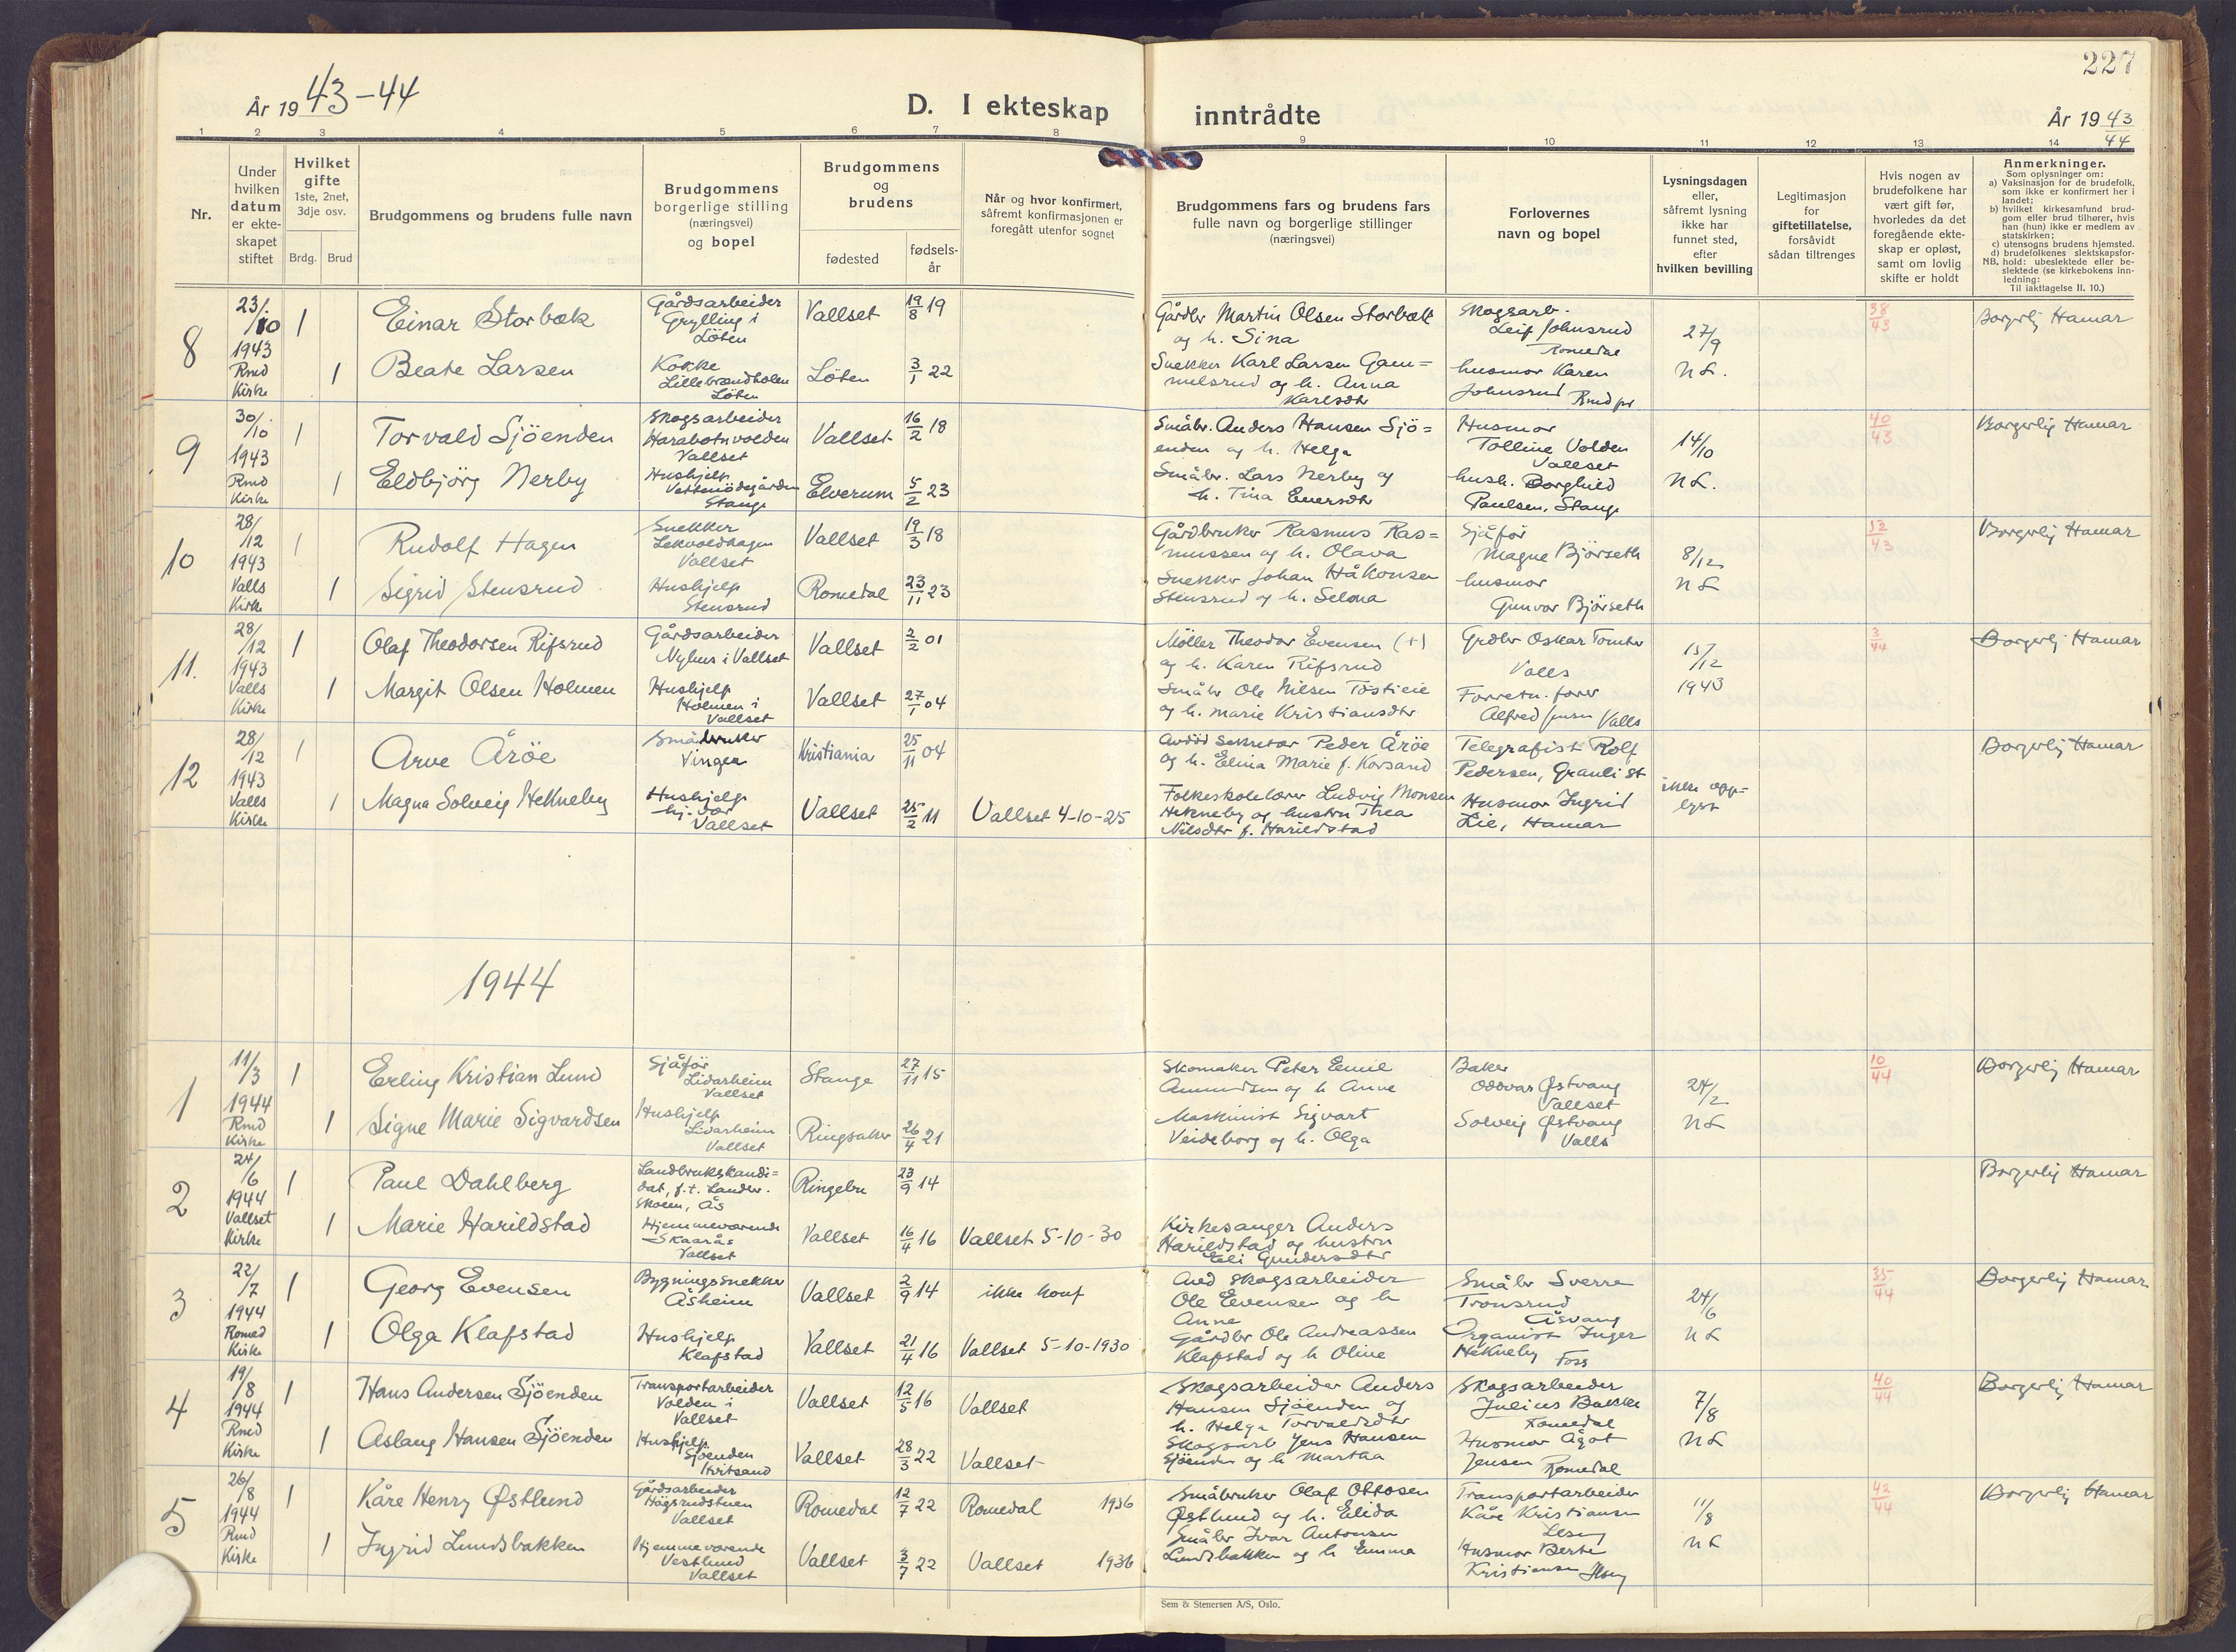 227
År 1943-44
D. I ekteskap inntrådte
År 19 43/44
1 2 3 4 5 6 7 8 9 10 11 12 13 14
Nr.
Under hvilken datum er ekte-skapet stiftet
Hvilket gifte 1ste, 2net, 3dje osv.
Brdg. Brud
Brudgommens og brudens fulle navn
Brudgommens borgerlige stilling (næringsvei) og bopel
Brudgommens og brudens
fødested
fødsels-år
Når og hvor konfirmert, såfremt konfirmasjonen er foregått utenfor sognet
Brudgommens fars og brudens fars fulle navn og borgerlige stillinger (næringsvei)
Forlovernes navn og bopel
Lysningsdagen eller, såfremt lysning ikke har funnet sted, efter hvilken bevilling
Legitimasjon for giftetillatelse, forsåvidt sådan tiltrenges
Hvis nogen av brudefolkene har vært gift før, hvorledes da det foregående ekte-skap er opløst, samt om lovlig skifte er holdt
Anmerkninger.
Som oplysninger om:
a) Vaksinasjon for de brudefolk, som ikke er konfirmert her i landet;
b) hvilket kirkesamfund brud-gom eller brud tilhører, hvis han (hun) ikke er medlem av statskirken;
c) utensogns brudens hjemsted.
d) brudefolkenes slektskapsfor-hold: ubeslektede eller be-slektede (se kirkebokens inn-ledning:
NB.
Til iakttagelse II. 10.)
8
23/10 1943 Rmd Kirke
1 Einar Storbæk
Gårdsarbeider Grylling i Löten
Vallset 19/8 19
Gårdbr Martin Olsen Storbæk og h. Sina
Skogsarb. Leif Johnsrud Romedal
27/9
38/43
Borgerlig Hamar
1 Beate Larsen
Kokke Lillebrandholen Löten
Löten 3/1 22
Snekker Karl Larsen Gam=melsrud og h. Anna Karlsdtr
husmor Karen Johnsrud Rmd pr
NS.
9
30/10 1943 Rmd Kirke
1 Torvald Sjöenden
Skogsarbeider Harabotnvolden Vallset
Vallset 16/2 18
Småbr. Anders Hansen Sjö=enden og h. Helga
Husmor Tolline Volden Vallset
14/10
40/43
Borgerlig Hamar
1 Eldbjörg Nerby
Hushjelp Stange
Elverum 5/2 23
Småbr. Lars Nerby og h. Tina Enersdtr
hush. Borghild Paulsen, Stange
NS.
10
28/12 1943 Valls Kirke
1 Rudolf Hagen
Snekker Vallset
Vallset 19/3 18
Gårdbruker Rasmus Ras=mussen og h. Olava
Sjåför Magne Björseth
8/12
52/43
Borgerlig Hamar
1 Sigrid Stensrud
Hushjelp Stensrud
Romedal 23/11 23
Snekker Johan Håkonsen Stensrud og h. Selma
husmor Gunvor Björseth
NS
11.
28/12 1943 Valls Kirke
1 Olaf Theodorsen Rifsrud
Gårdsarbeider Nyhus i Vallset
Vallset 2/2 01
Möller Theodor Evensen (+) og h. Karen Rifsrud
Grdbr Oskar Tomter Valls
15/12 1943
3/44
Borgerlig Hamar
1 Margit Olsen Holmen
Hushjelp Holmen i Vallset
Vallset 27/1 04
Småbr Ole Nilsen Tostieie og h. Marie Kristiansdtr
Forretn. förer Alfred Jensen Valls
12
28/12 1943 Valls Kirke
1 Arve Åröe
Småbruker Vinger
Kristiania 25/11 04
Avdöd Sekretær Peder Åröe og h. Elina Marie f. Korsand
Telegrafist Rolf Pedersen, Granli st
ikke opp=lyst
Borgerlig Hamar
1 Magna Solveig Hekneby
Hushjelp hj. vær Vallset
Vallset 25/2 11
Vallset 4-10-25
Folkeskolelærer Ludvig Monsen Hekneby og hustru Thea Nilsdtr f. Harildstad
Husmor Ingrid Lie, Hamar
1944
1
11/3 1944 Rmd Kirke
1 Erling Kristian Lund
Sjåför Lidarheim Vallset
Stange 27/11 15
Skomaker Peter Emil Amundsen og h Anne
Baker Oddvar Østvang Vallset
24/2
10/44
Borgerlig Hamar
1 Signe Marie Sigvardsen
Hushjelp Lidarheim Vallset
Ringsaker 26/4 21
Maskinist Sigvart Veideborg og h. Olga
Solveig Østvang Valls
NS
2
24/6 1944 Vallset Kirke
1 Paul Dahlberg
Landbrukskandi=dat, f.t. Landbr. skolen, Ås
Ringebu 23/9 14
Borgerlig Hamar
1 Marie Harildstad
Hjemmeværende Skaarås Vallset
Vallset 16/4 16
Vallset 5-10-30
Kirkesanger Anders Harildstad og hustru Eli Gundersdtr
3
22/7 1944 Romed Kirke
1 Georg Evensen
Bygningssnekker Åsheim
Vallset 2/9 14
ikke konf
Avd skogsarbeider Ole Evensen og h Anne
Småbr Sverre Tronsrud Åsvang
24/6
35/44
Borgerlig Hamar
1 Olga Klafstad
Hushjelp Klafstad
Vallset 21/4 16
Vallset 5-10-1930
Gårdbr Ole Andreassen Klafstad og h Oline
Organist Inger Hekneby Foss
NS
4
19/8 1944 Rmd Kirke
1 Hans Andersen Sjöenden
Transportarbeider Volden i Vallset
Vallset 12/5 16
Vallset
Skogsarbeider Anders Hansen Sjöenden og h. Helga Torvaldsdtr
Skogsarbeider Julius Bakke Romedal
7/8
40/44
Borgerlig Hamar
1 Aslaug Hansen Sjöenden
Hushjelp Sjöenden Kvitsand
Vallset 28/3 22
Vallset
Skogsarb Jens Hansen Sjöenden og h Martha
Husmor Ågot Jensen Romedal
NS
5
26/8 1944 Rmd Kirke
1 Kåre Henry Østlund
Gårdsarbeider Högsrudstuen Vallset
Romedal 12/7 22
Romedal 1936
Småbruker Olaf Ottosen Østlund og h. Elida
Transportarbeider Kåre Kristiansen
11/8
42/44
Borgerlig Hamar
1 Ingrid Lundsbakken
Hjemmeværende Vestlund Vallset
Vallset 3/7 22
Vallset 1936
Småbr Ivar Antonsen Lundsbakken og h Emma
Husmor Berte Kristiansen
NS
Sem & Stenersen A/S, Oslo.